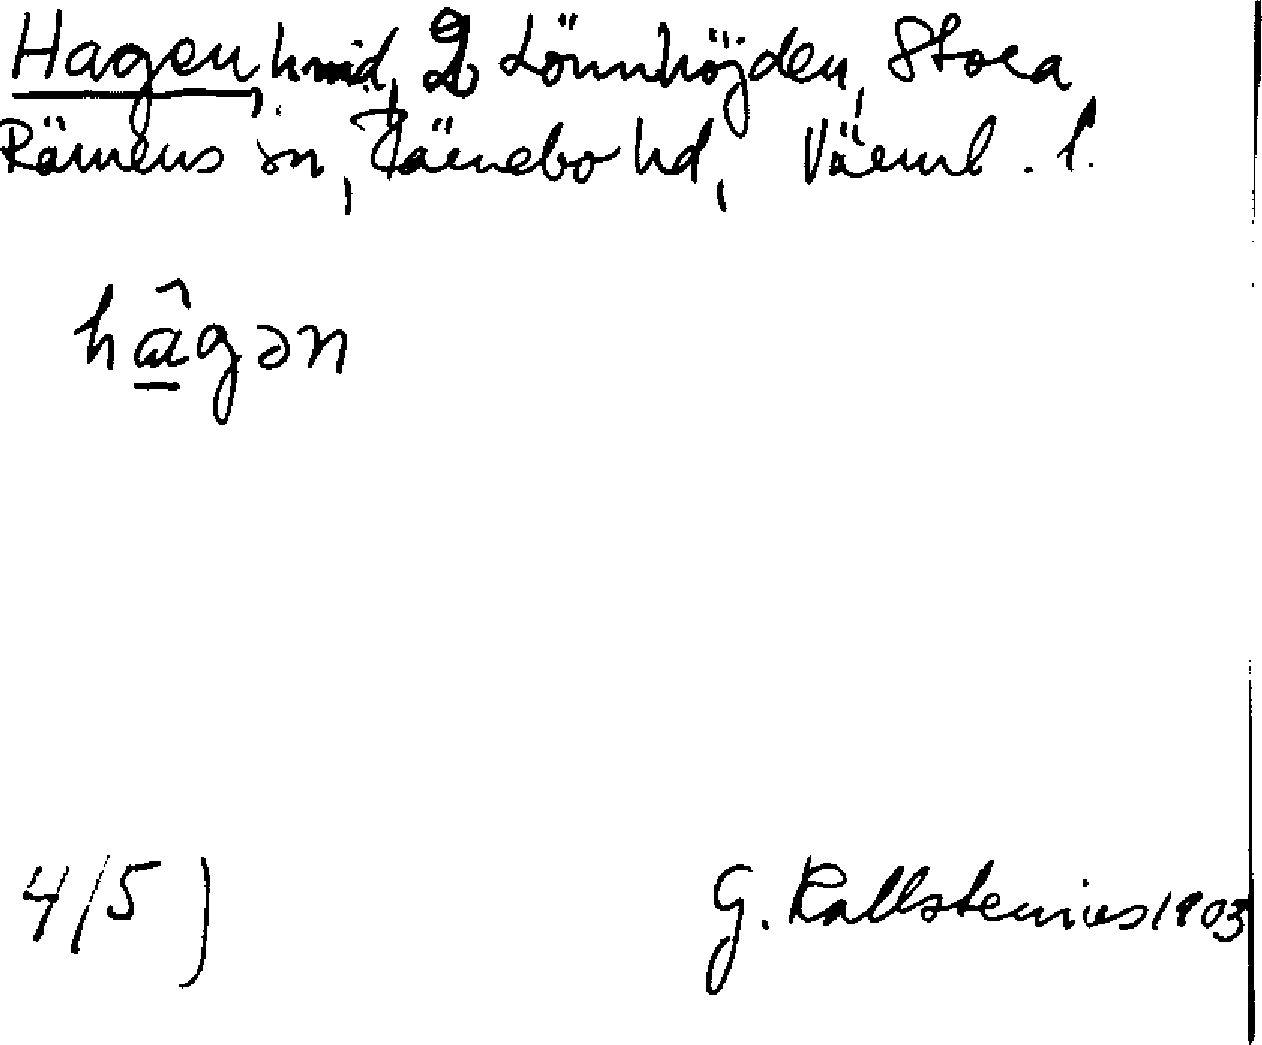 Hagen, hmd, Lönnhöjden, Stora
Rämens sn, Färnebo hd, Värml. l.
hâ̱gən
4/5)
G. Kallstenius 1903